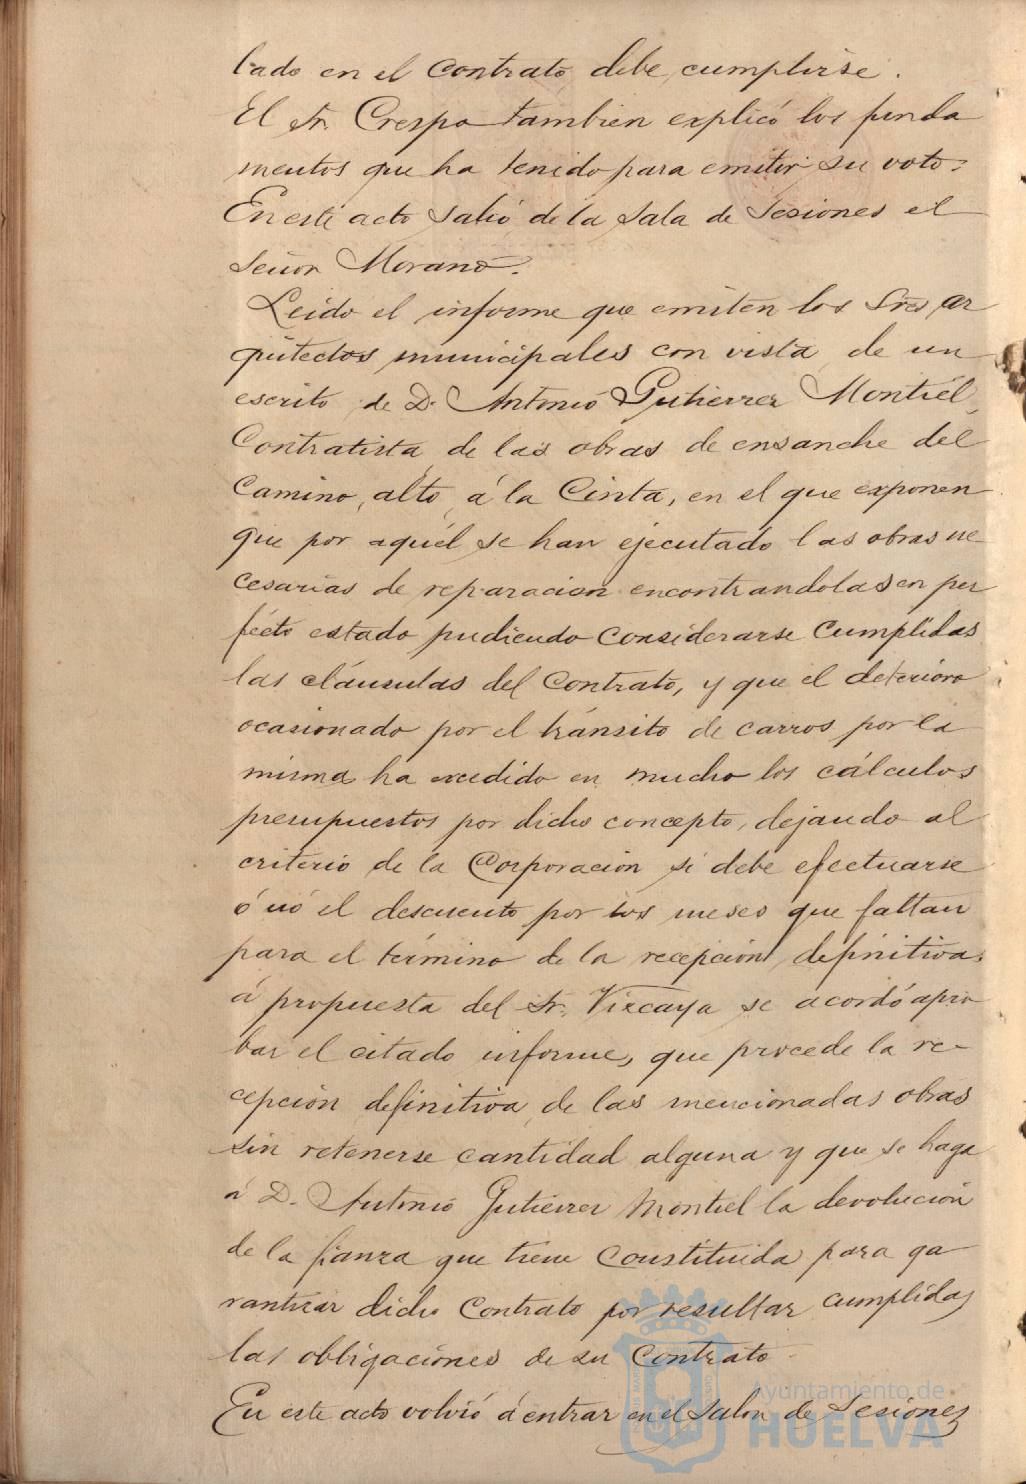 lado en el Contrato debe cumplirse.
El Sr. Crespo tambien explicó los funda
mentos que ha tenido para emitir su voto.
En este acto salió de la Sala de Sesiones el
Señor Morano.
Leido el informe que emiten los Sres Ar
quitectos municipales con vista de un
escrito de D. Antonio Gutierrez Montiel,
Contratista de las obras de ensanche del
Camino alto á la Cinta, en el que exponen
que por aquél se han ejecutado las obras ne
cesarias de reparacion encontrandolas en per
fecto estado pudiendo considerarse cumplidas
las cláusulas del Contrato, y que el deterioro
ocasionado por el tránsito de carros por la
misma ha excedido en mucho los cálculos
presupuestos por dicho concepto, dejando al
criterio de la Corporación si debe efectuarse
ó nó el descuento por los meses que faltan
para el término de la recepción definitiva,
á propuesta del Sr. Vizcaya se acordó apro
bar el citado informe, que procede la re-
cepción definitiva de las mencionadas obras
sin retenerse cantidad alguna y que se haga
á D. Antonio Gutierrez Montiel la devolución
de la fianza que tiene constituida para ga
rantizar dicho Contrato por resultar cumplidas
las obligaciones de su Contrato.
En este acto volvió á entrar en el Salon de Sesiones
Ayuntamiento de
HUELVA